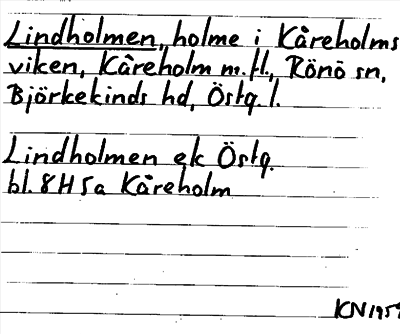 Lindholmen, holme i Kåreholms
viken, Kåreholm m.fl., Rönö sn,
Björkekinds hd, Östg. l.
Lindholmen ek Östg.
bl. 8H 5a Kåreholm
KN